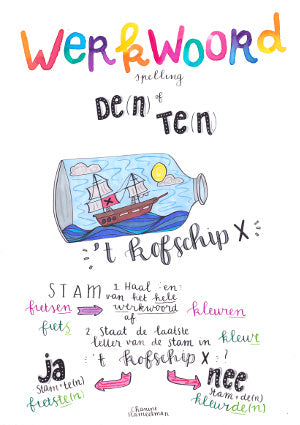 Werkwoord
spelling
DE(N) of
TE(N)
't kofschip X
STAM 1. Haal -en-
van het hele
fietsen werkwoord af kleuren
fiets 2. Staat de laatste kleur
letter van de stam in
ja 't kofschip X ? nee
stam+te(n) stam+de(n)
fietste(n) kleurde(n)